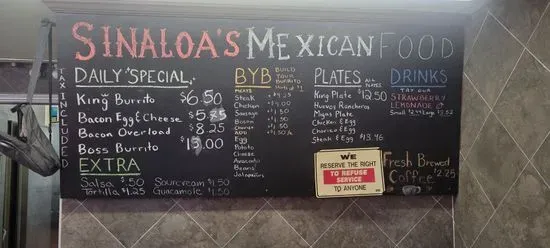 SINALOA'S MEXICAN FOOD
TAX INCLUDED
DAILY SPECIAL
King Burrito $6.50
Bacon Egg & Cheese $5.75
Bacon Overload $8.25
Boss Burrito $13.00
EXTRA
Salsa $.50 Sourcream $1.50
Tortilla $1.25 Guacamole $1.50
BYB BUILD YOUR BURRITO
MEATS
Steak
Chicken
Sausage
Bacon
Chorizo
ADD
Egg
Potato
Cheese
Avocado
Beans
Jalapeños
PLATES ALL PLATES
King Plate $12.50
Huevos Rancheros
Migas Plate
Chicken & Egg
Chorizo & Egg
Steak & Egg $13.46
WE
RESERVE THE RIGHT
TO REFUSE
SERVICE
TO ANYONE
DRINKS
TRY OUR
STRAWBERRY
LEMONADE
Small Large
Fresh Brewed
Coffee $2.25